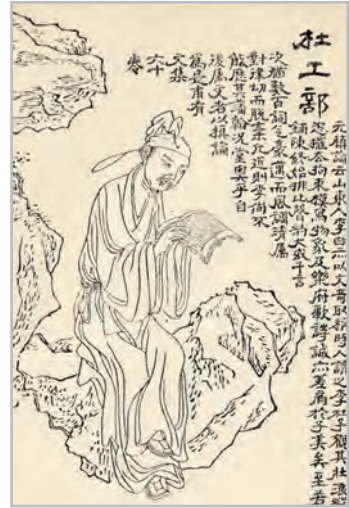 杜工部
元稹論云山東人李白亦以文奇取稱時人謂之李杜予觀其壯浪
恣擺去拘束摸寫物象及樂府歌詩誠亦差肩於子美矣至若
鋪陳終始排比聲韻大或千言
次猶數百詞气豪邁而風調清屬
對律切而脫棄凡近則李尚不
能歷其藩翰況堂奧乎自
後属文者以稹論
爲是甫有
文集
六十
卷